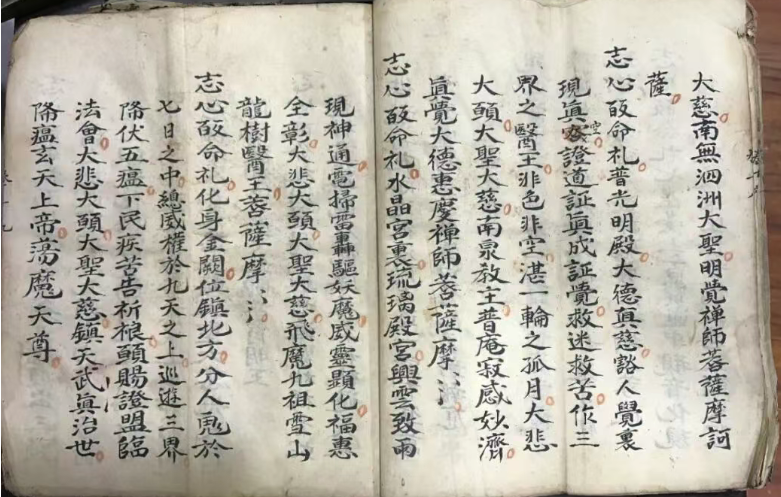 大慈南無泗洲大聖明覺禪師菩薩摩訶
薩
志心皈命礼普光明殿大德真慈豁人覺裏
現真空證道証真成証覺救迷救苦作三
界之醫王非色非空湛一輪之孤月大悲
大願大聖大慈南泉教主普庵寂感妙濟
眞覺大德惠慶禪師菩薩摩〻
志心皈命礼水晶宮裏琉璃殿宮興雲致雨
現神通電掃雷轟驅妖魔威靈顯化福惠
全彰大悲大願大聖大慈飛魔九祖雪山
龍樹醫王菩薩摩〻
志心皈命礼化身金闕位鎮北方分人鬼於
七日之中總威權於九天之上巡遊三界
降伏五瘟下民疾苦告祈禳願賜證盟臨
法會大悲大願大聖大慈鎮天武眞治世
降瘟玄天上帝蕩魔天尊